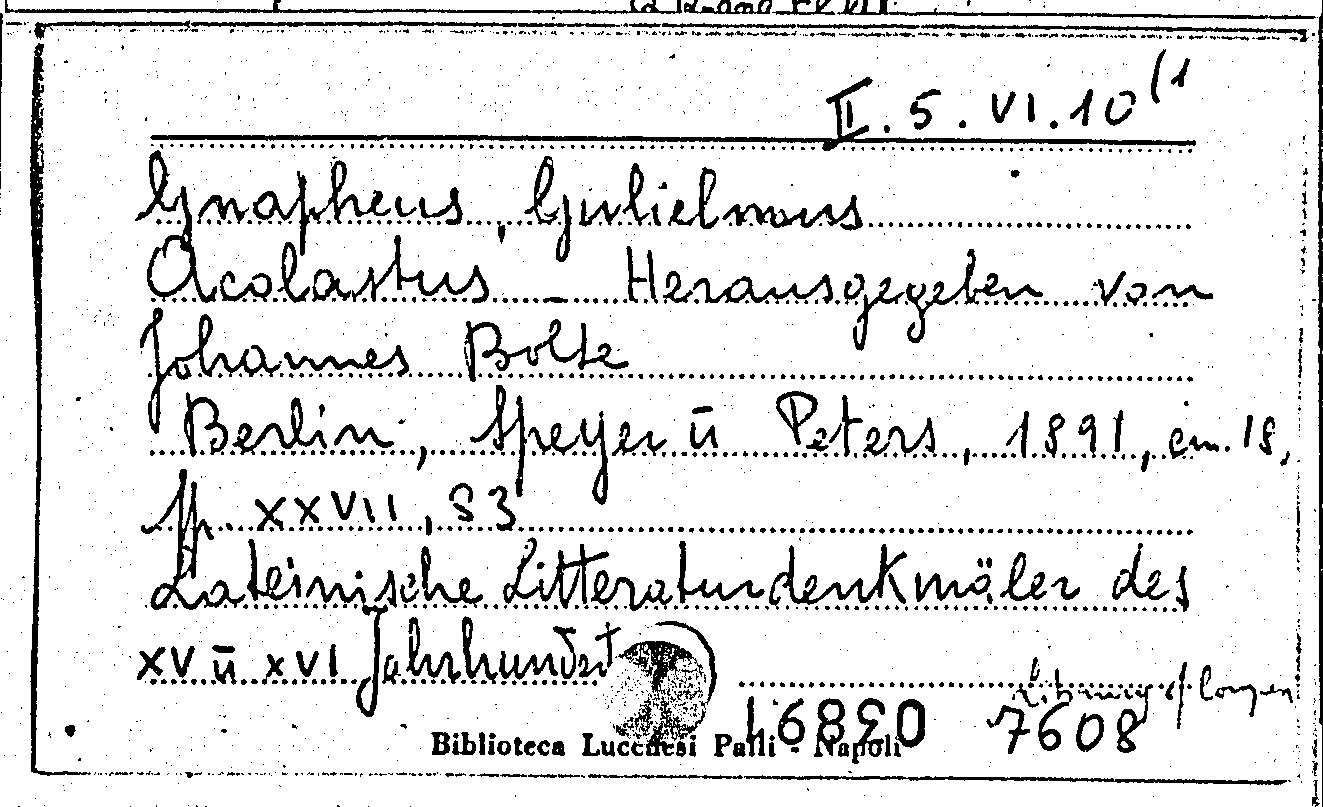 II. 5. VI. 10 (1
Gnapheus, Gulielmus
Acolastus - Herausgegeben von
Johannes Bolte
Berlin, Speyer ū Peters, 1891, cm. 18,
pp. XXVII, 83
Lateinische Litteraturdenkmäler des
XV ū XVI Jahrhundert
Library of Congres
7608
Biblioteca Lucchesi Palli - Napoli